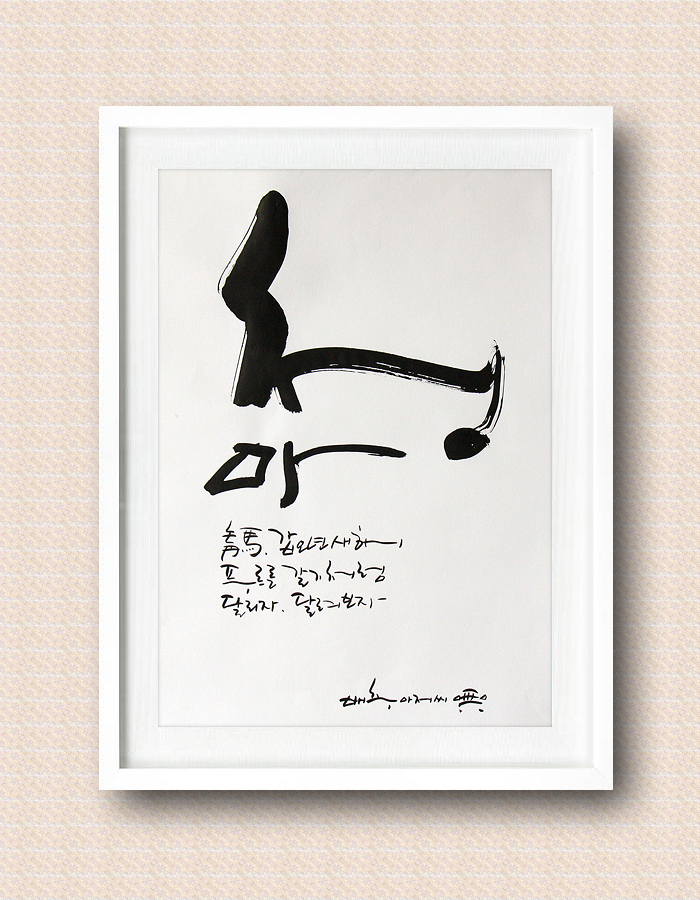 청
마
靑馬. 갑오년 새해,
푸르른 갈기처럼
달리자. 달려보자-
아저씨